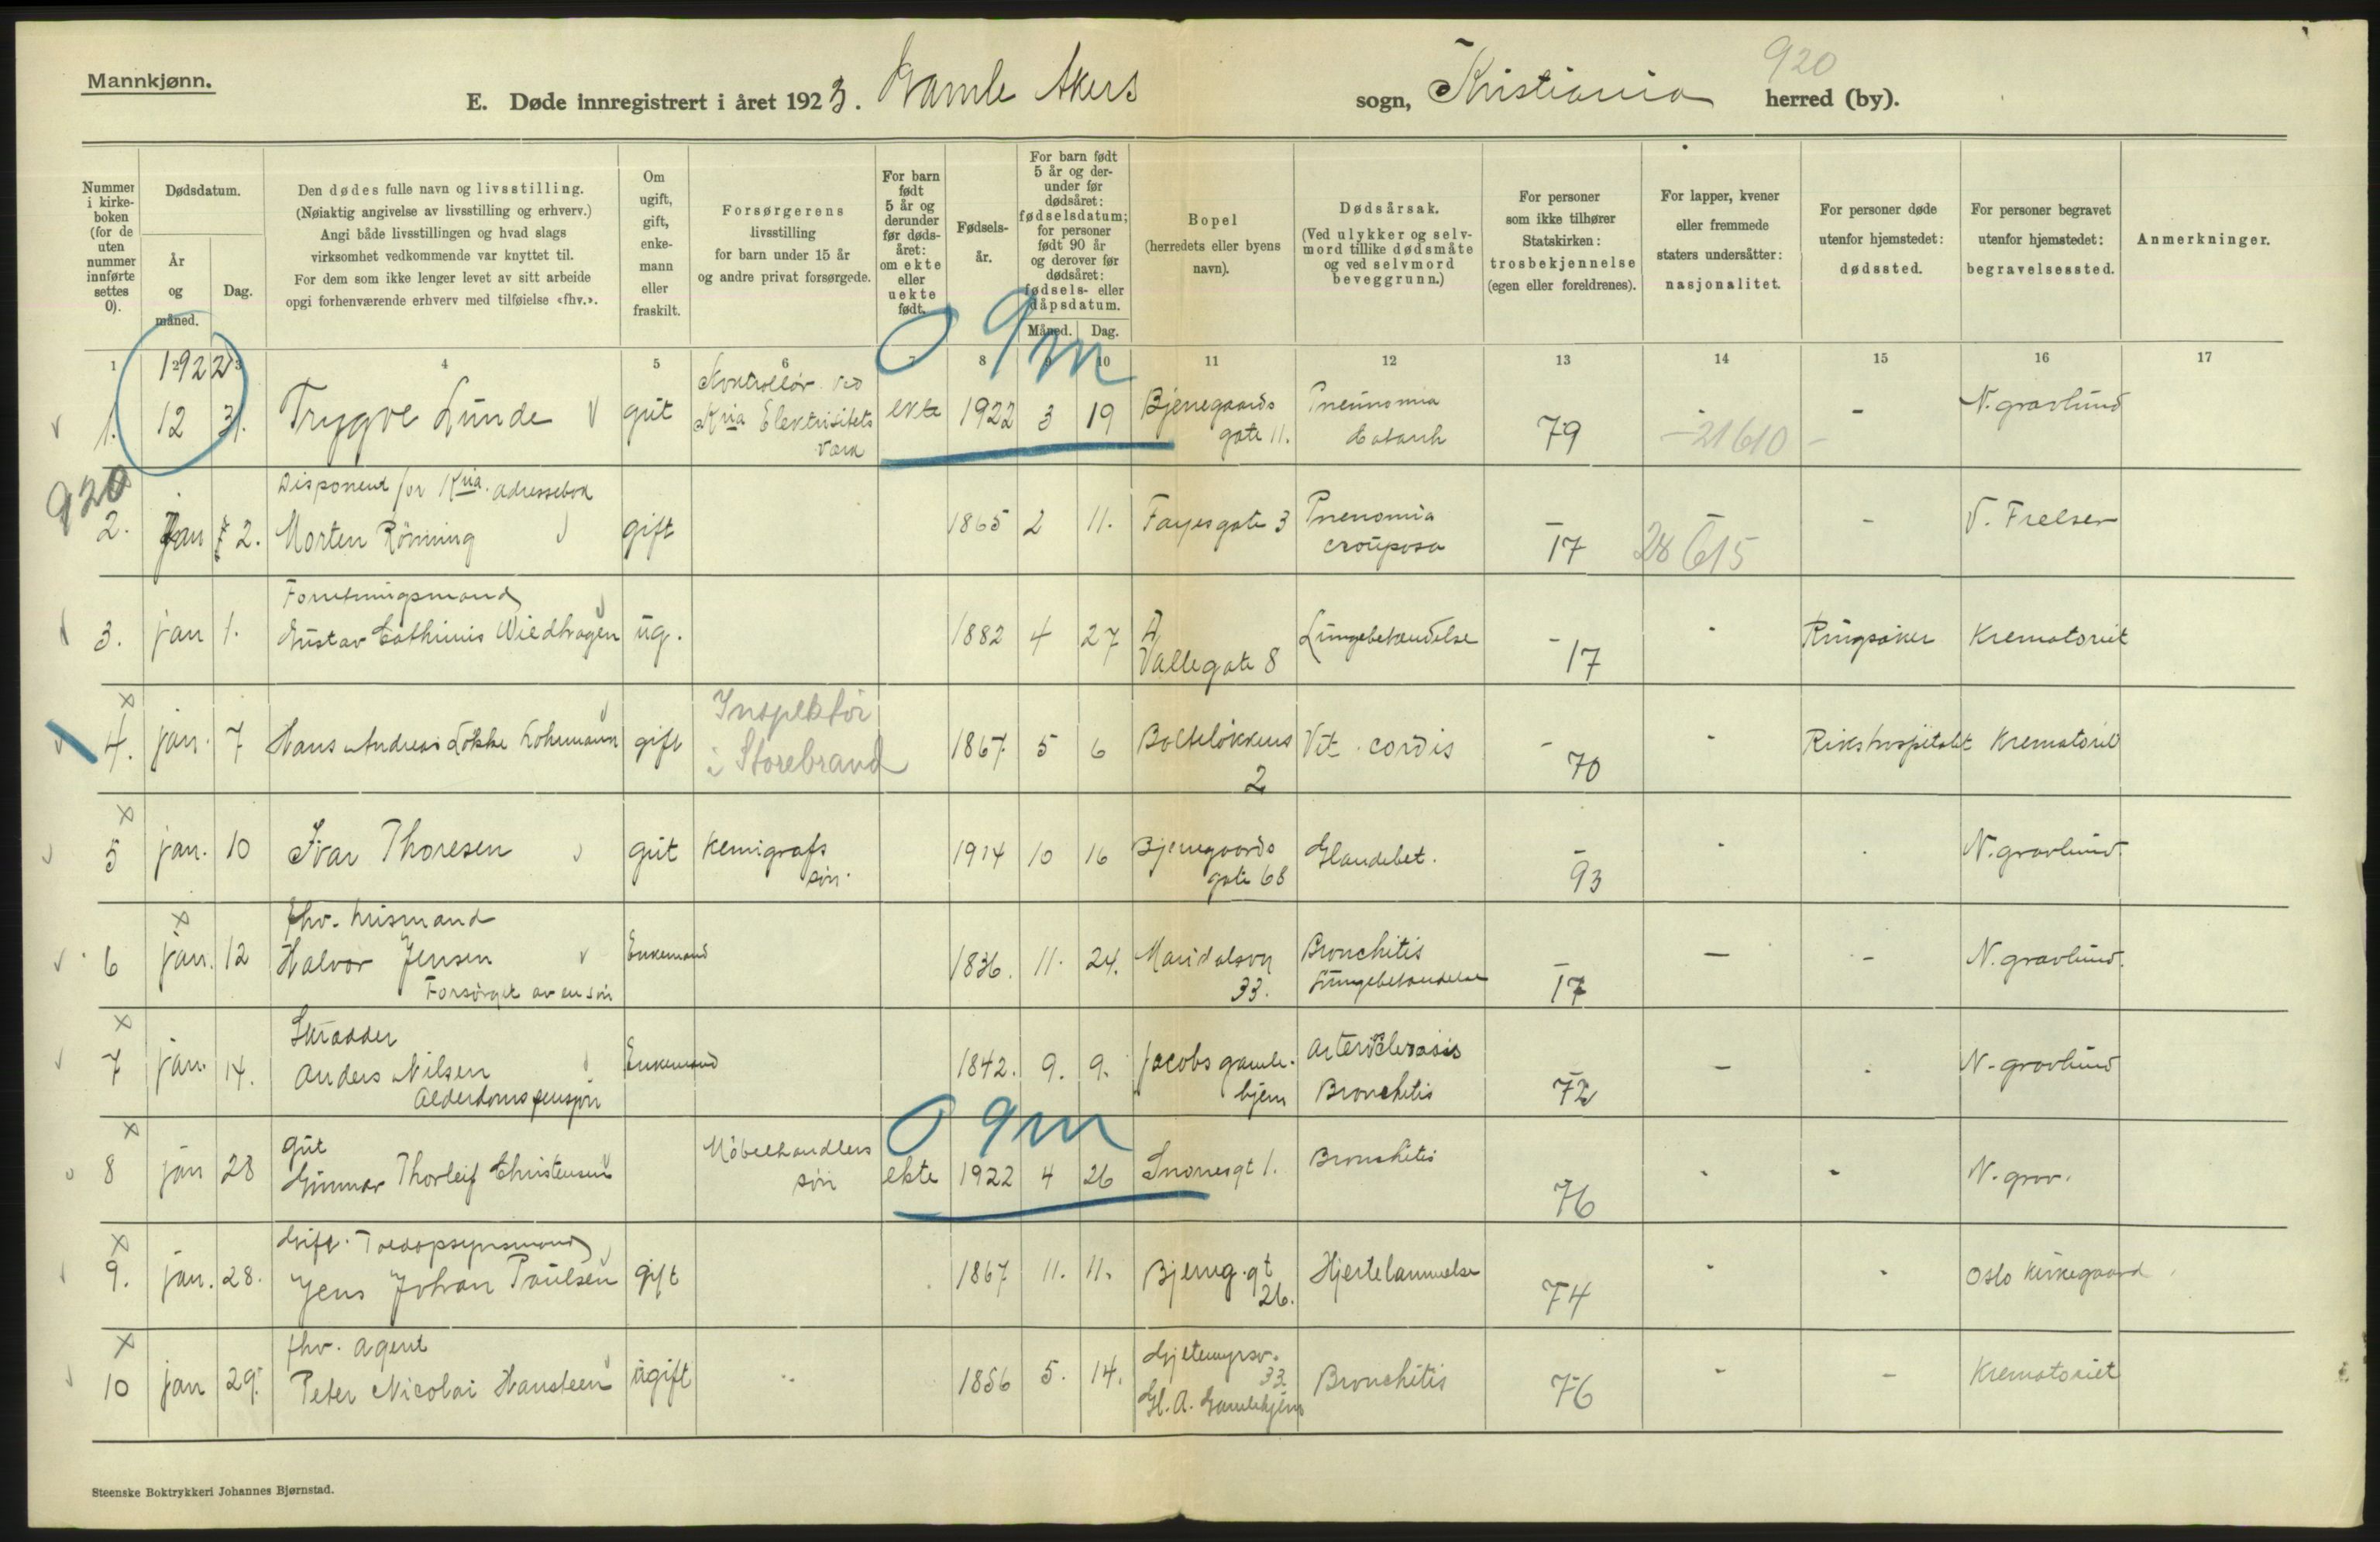 920
Mannkjønn.
E. Døde innregistrert i året 1923. Gamle Akers sogn, Kristiania herred (by).
Nummer i kirkeboken (for de uten nummer innførte settes 0).
Dødsdatum.
År og måned.
Dag.
Den dødes fulle navn og livsstilling.
(Nøiaktig angivelse av livsstilling og erhverv.)
Angi både livsstillingen og hvad slags
virksomhet vedkommende var knyttet til.
For dem som ikke lenger levet av sitt arbeide
opgi forhenværende erhverv med tilføielse «fhv.».
Om ugift, gift, enkemann eller fraskilt.
Forsørgerens
livsstilling
for barn under 15 år
og andre privat forsørgede.
For barn født 5 år og derunder før dødsåret: om ekte eller uekte født.
Fødselsår.
For barn født 5 år og derunder før dødsåret: fødselsdatum; for personer født 90 år og derover før dødsåret: fødsels- eller dåpsdatum.
Måned. Dag.
Bopel
(herredets eller byens
navn).
Dødsårsak.
(Ved ulykker og selvmord tillike dødsmåte og ved selvmord beveggrunn.)
For personer
som ikke tilhører
Statskirken:
trosbekjennelse
(egen eller foreldrenes).
For lapper, kvener
eller fremmede
staters undersåtter:
nasjonalitet.
For personer døde
utenfor hjemstedet:
dødssted.
For personer begravet
utenfor hjemstedet:
begravelsessted.
Anmerkninger.
1 2 3 4 5 6 7 8 9 10 11 12 13 14 15 16 17
0 9m
1922
1. 12 31. Trygve Lunde gut Kontrollør ved Kria Elektrisitets værk ekte 1922 3 19 Bjerregaards gate 11. Pneumonia Catarrh 79 - 21610 - - N. gravlund
920
2. Jan 2. Disponent for Kria. adressebok
Morten Rönning gift 1865 2 11. Fayesgate 3 Pnenomia crouposa - 17 - 28615 - V. Frelser
3. jan 1. Forretningsmand
Gustav Cathinius Wiedhagen ug. 1882 4 27 A Vallegate 8 Lungebetændelse - 17 - Ringsaker Krematoriet
x
4. jan. 7 Hans Andreas Løkke Lohrmann gift Inspektör i Storebrand 1867 5 6 Bolteløkkens 2 Vit. cordis - 70 - Rikshospitalet Krematoriet
x
5 jan. 10 Ivar Thoresen gut Kemigrafs søn. 1914 10 16 Bjerregaards gate 68 - 93 - - N. gravlund.
x
6 jan. 12 fhv. Murismand
Halvor Jensen
Forsørget av en søn Enkemand 1836. 11. 24. Maridalsvn 33. Bronchitis Lungebetændelse - 17 - - N. gravlund.
x
7 jan. 14. Skrædder
Anders Nilsen
Alderdomspensjon Enkemand 1842. 9. 9. Jacobs gamle-hjem Arteriosclerosis Bronchitis - 72 - - N. gravlund
0 9m
x
8 jan 28 gut
Gunnar Thorleif Christensen Möbelhandlers søn ekte 1922 4 26 Snorresgt 1. Bronchitis 76 - - N. grav.
x
9. jan. 28. Gift. Toldopsynsmand
Jens Johan Paulsen gift 1867 11. 11. Bjerreg. gt 26. Hjertelammelse 74 - - Oslo Kirkegaard
x
10 jan 29. fhv. agent
Peter Nicolai Hansteen ugift 1856 5. 14. Gjetemyrsv. 33 Gl. A. Gamlehjem Bronchitis 76 - - Krematoriet
Steenske Boktrykkeri Johannes Bjørnstad.